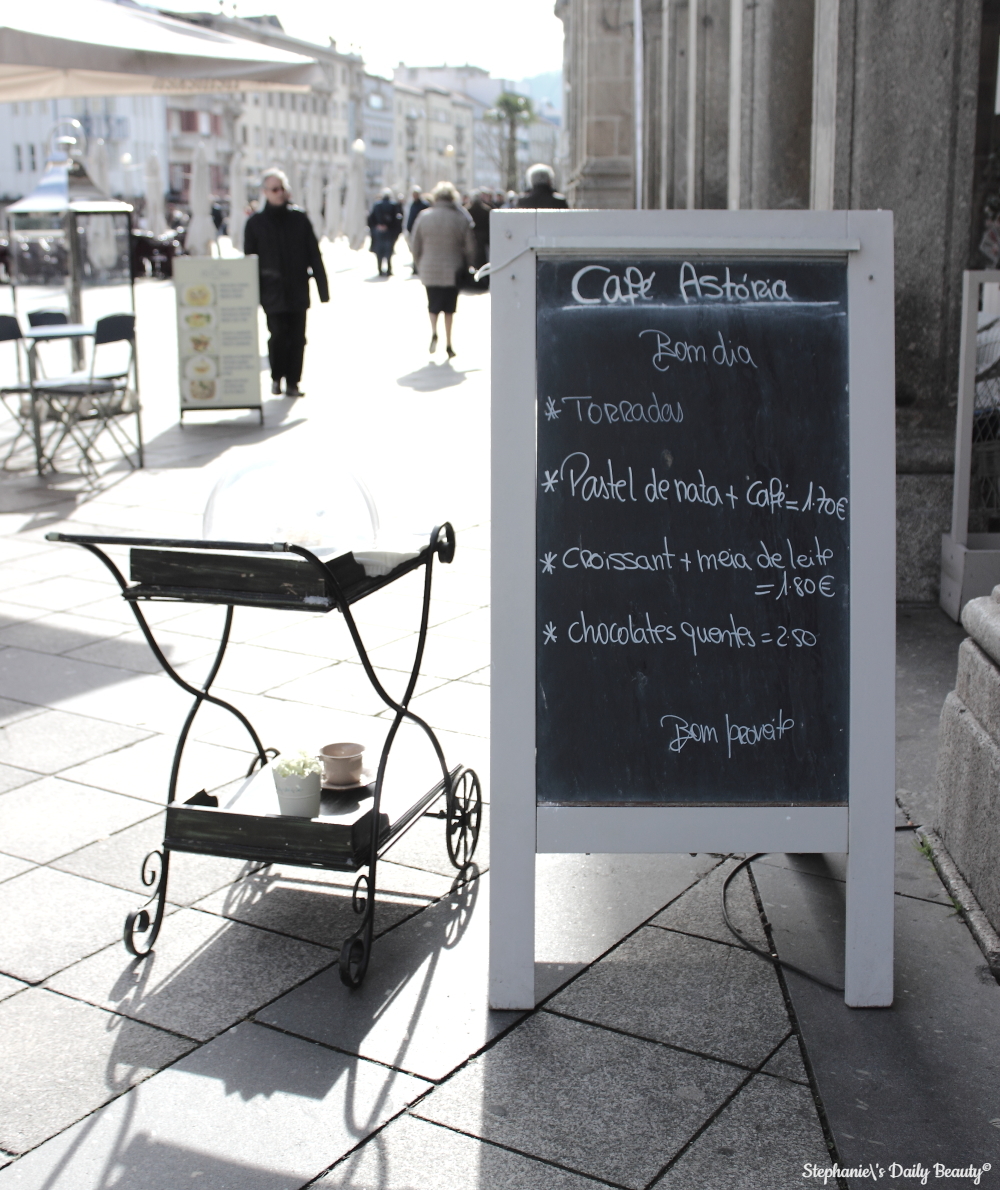 Café Astória
Bom dia
* Torradas
* Pastel de nata + café = 1.70€
* croissant + meia de leite
= 1.80€
* chocolates quentes = 2.50
Bom proveito
Stephanie\'s Daily Beauty©